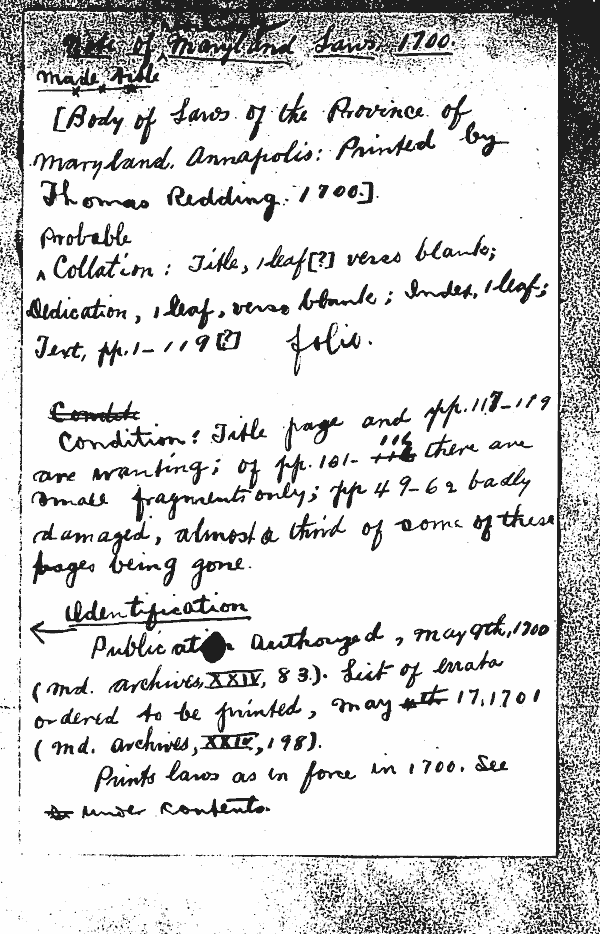 Note of Maryland Laws, 1700.
Made Title
[Body of Laws of the Province of
Maryland. Annapolis: Printed by
Thomas Redding. 1700.]
Probable
^ Collation: Title, 1 leaf [?] verso blank;
Dedication, 1 leaf, verso blank; Index, 1 leaf;
Text, pp. 1-119 [?] folio.
Condit
Condition: Title page and pp. 117-119
are wanting; of pp. 101-116 there are
small fragments only; pp 49-62 badly
damaged, almost a third of some of these
pages being gone.
Identification
Publication Authorized, May 9th, 1700
(Md. archives, XXIV, 83). List of errata
ordered to be printed, May 17, 1701
(Md. archives, XXIV, 198).
Prints laws as in force in 1700. See
under contents.